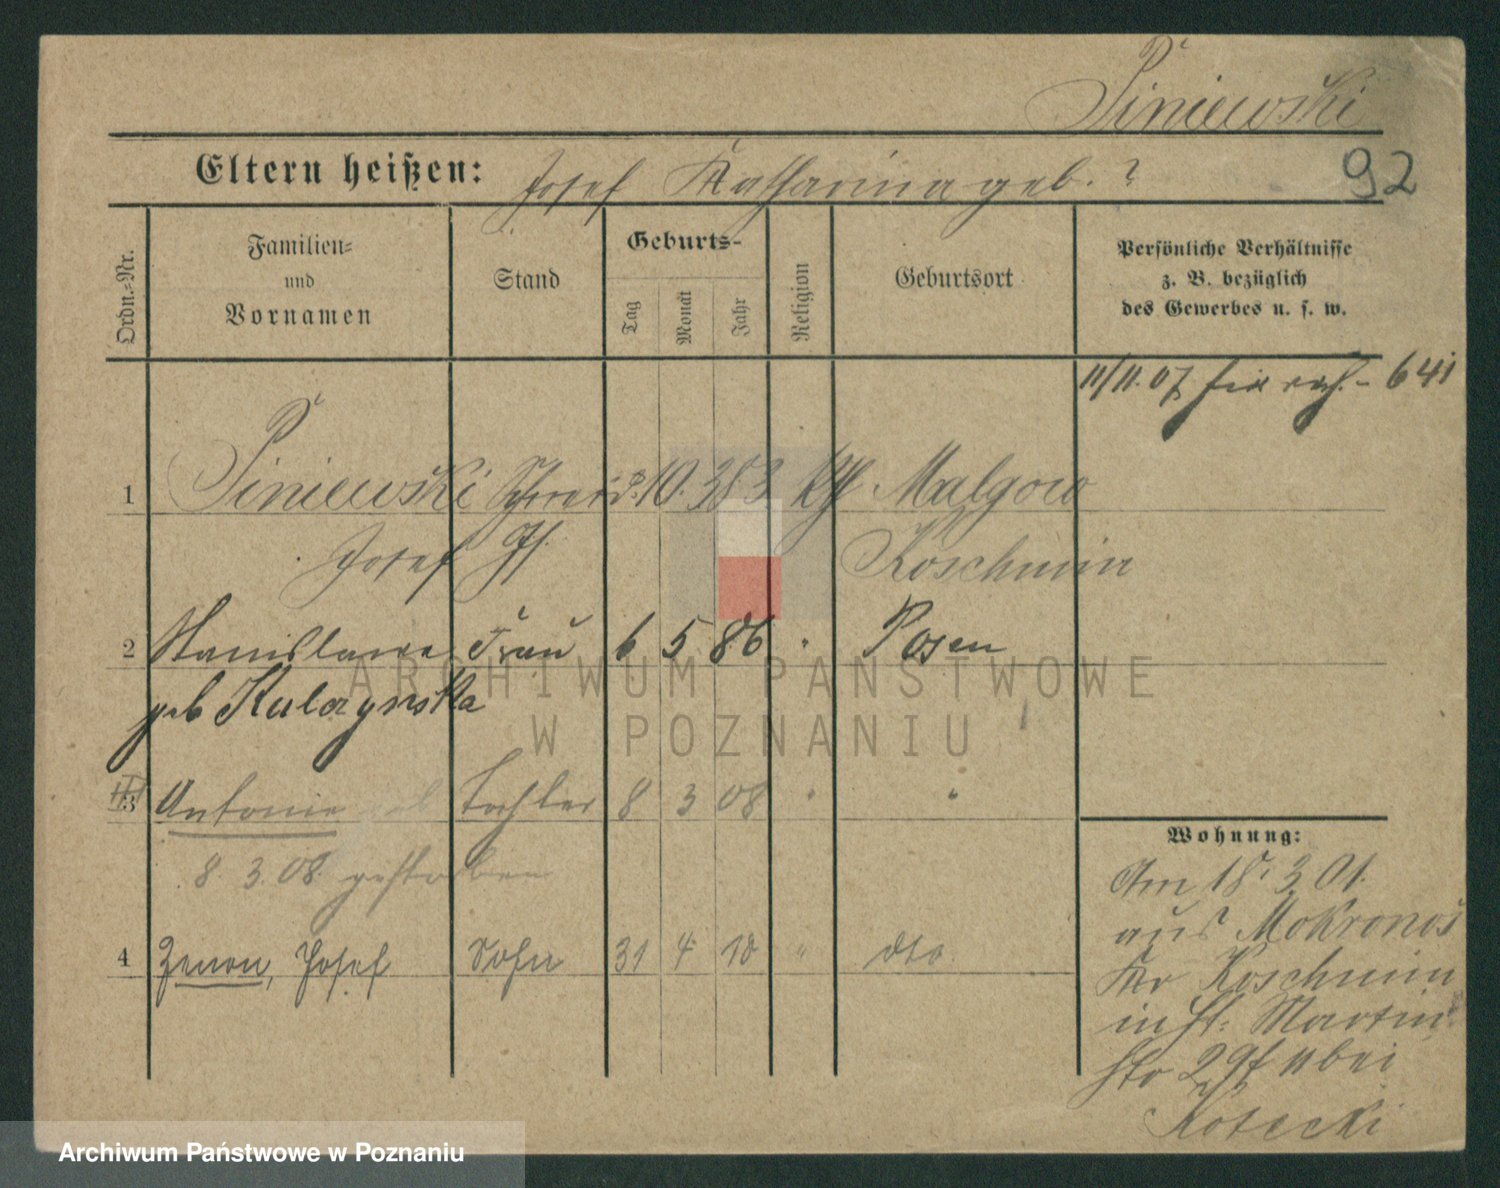 Piniewski
Eltern heißen: Josef Katharina geb. ?
92
Ordn.-Nr.
Familien-
und
Vornamen
Stand
Geburts-
Tag
Monat
Jahr
Religion
Geburtsort
Persönliche Verhältnisse
z. B. bezüglich
des Gewerbes u. s. w.
11/11. 07 641
1 Piniewski 10. 3 83 Kth Malgow
Josef Koschmin
2 Stanislawa Frau 6 5 86 " Posen
geb Kulczynska
3 Antonie Tochter 8 3 08 " "
8. 3. 08. gestorben
4 Zenon, Josef Sohn 31 4 10 " dto
Wohnung:
Am 18. 3 01.
aus Mokronos
Kr Koschmin
in St. Martin
str 29 bei
Kotecki
ARCHIWUM PAŃSTWOWE
W POZNANIU
Archiwum Państwowe w Poznaniu